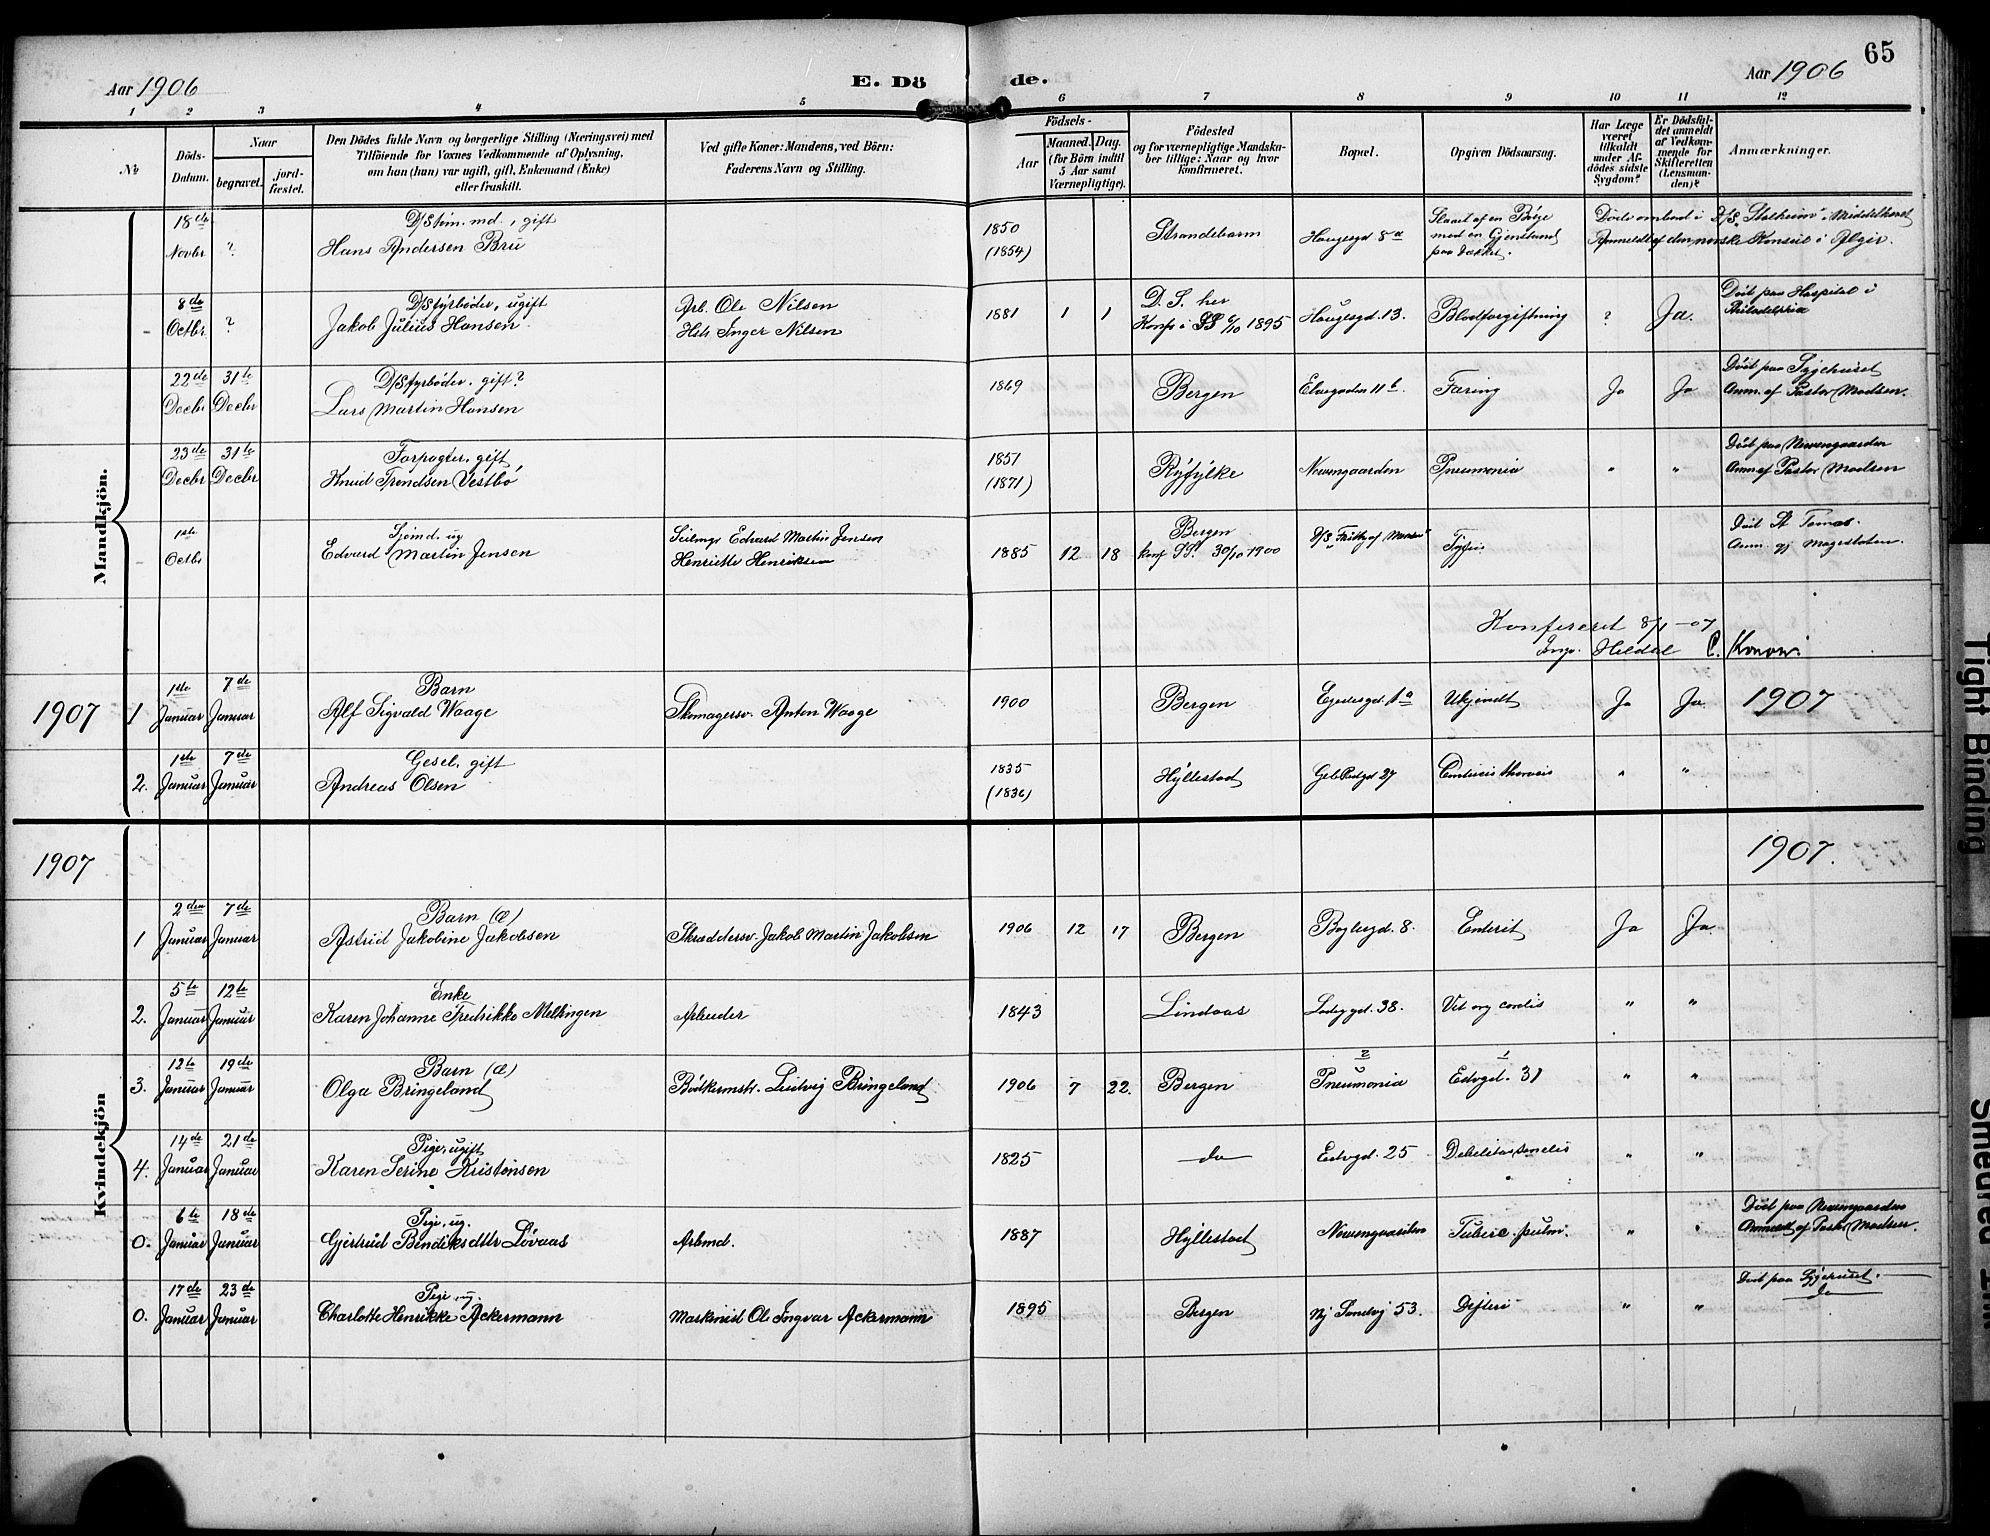 65
Aar 1906
E. Dö de.
Aar 1906
1 2 3 4 5 6 7 8 9 10 11 12
№
Döds-Datum.
Naar
begravet.
jord-fæstet.
Den Dödes fulde Navn og borgerlige Stilling (Næringsvei) med
Tilföiende for Voxnes Vedkommende af Oplysning,
om han (hun) var ugift, gift, Enkemand (Enke)
eller fraskilt.
Ved gifte Koner: Mandens, ved Börn:
Faderens Navn og Stilling.
Födsels-
Aar
Maaned.
Dag.
(for Börn indtil
5 Aar samt
Værnepligtige).
Födested
og for værnepligtige Mandska-
ber tillige: Naar og hvor
konfirmeret.
Bopæl.
Opgiven Dödsaarsag.
Har Læge
været
tilkaldt
under Af-
dödes sidste
Sygdom?
Er Dödsfal-
det anmeldt
af Vedkom-
mende for
Skifteretten
(Lensman-
den)?
Anmærkninger.
Mandkjön.
18de Novbr ?
gift
Hans Andersen Bru
1850 (1854)
Strandebarm
Haugesgd 8a
Slaaet af en Bøye
med en Gjenstand
paa Dækket.
Døde ombord i D/S "Stalheim" i Middelhavet
Anmeldt af den norske Konsul i Algir.
8de Octbr ?
D/S fyrbøder, ugift
Jakob Julius Hansen
Arb. Ole Nilsen
Inger Nilsen
1881 1 1
D. S. her
Konf i SS 6/10 1895
Haugesgd. 13.
Blodforgiftning
?
Ja.
Død paa Hospital i
Philadelphia
22de Decbr 31te Decbr
D/S fyrbøder, gift?
Lars Martin Hansen
1869
Bergen
Elvegaden 11b.
Tæring
Ja Ja
Død paa Sygehuset
Anm. af Pastor Madsen.
23de Decbr 31te Decbr
Forpagter, gift
Knud Trondsen Vestbø
1851 (1871)
Ryfylke
Nevengaarden
Pneumonia
" "
Død paa Nevengaarden
Anm af Pastor Madsen
1ste Octbr
Sjømd. ug
Edvard Martin Jensen
Seilmgr Edvard Martin Jensen
Henriette Henriksen
1885 12 18
Bergen
konf SS. 30/10 1900
D/S "Fridtjof Nansen"
Tyfus
Død St Tomas.
Anm. af Magistraten.
Konfereret 8/1 - 07
Hildal
C. Konow.
1907
1 1ste Januar 7de Januar
Barn
Alf Sigvald Waage
Skomagersv. Anton Waage
1900
Bergen
Egedesgd. 1a
Ukjendt
Ja Ja
1907
2. 1ste Januar 7de Januar
Gesel, gift
Andreas Olsen
1835 (1836)
Hyllestad
27
thoracis
" "
1907
1907.
Kvindekjön
1 2den Januar 7de Januar
Barn (Æ)
Astrid Jakobine Jakobsen
Skræddersv. Jakob Martin Jakobsen
1906 12 17
Bergen
Bøglergd. 8.
Enterit
Ja Ja
2. 5te Januar 12te Januar
Enke
Karen Johanne Fredrikke Mellingen
Arbeider
1843
Lindaas
Ladegd. 38.
Vit org cordis
" "
3. 12te Januar 19de Januar
Barn (Æ)
Olga Bringeland
Bødkermstr. Ludvig Bringeland
1906 7 22.
Bergen
2
Pneumonia
1
Edvgd. 31
" "
4. 14de Januar 21de Januar
Pige, ugift
Karen Serine Kristensen
1825
do
Edvgd. 25
Debilitas senilis
" "
0. 6te Januar 18de Januar
Pige, ug.
Gjertrud Bendiksdttr Løvaas
Arbmd.
1887
Hyllestad
Nevengaarden
Tuberc. pulm.
" "
Død paa Nevengaarden
Anmeldt af Pastor Madsen.
0. 17de Januar 23de Januar
Pige, ug.
Charlotte Henrikke Ackermann
Maskinist Ole Ingvar Ackermann
1895
Bergen
Ny Sandvg 53.
Difteri
" "
Død paa Sygehuset.
do
Tight Binding
Smeared Ink